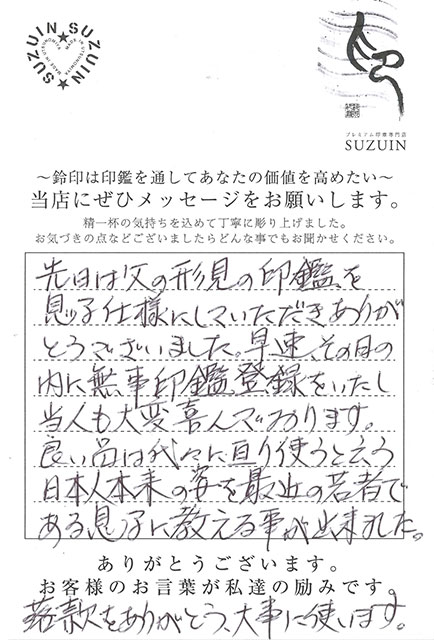 SUZUIN★SUZUIN★
MADE IN UTSUNOMIYA
印
プレミアム印章専門店
SUZUIN
～鈴印は印鑑を通してあなたの価値を高めたい～
当店にぜひメッセージをお願いします。
精一杯の気持ちを込めて丁寧に彫り上げました。
お気づきの点などございましたらどんな事でもお聞かせください。
先日は父の形見の印鑑を
息子仕様にしていただきありが
とうございました。早速、その日の
内に無事印鑑登録をいたし
当人も大変喜んでおります。
良い品は代々に亘り使うと云う
日本人本来の姿を最近の若者で
ある息子に教える事が出来ました。
ありがとうございます。
お客様のお言葉が私達の励みです。
落款をありがとう、大事に使います。